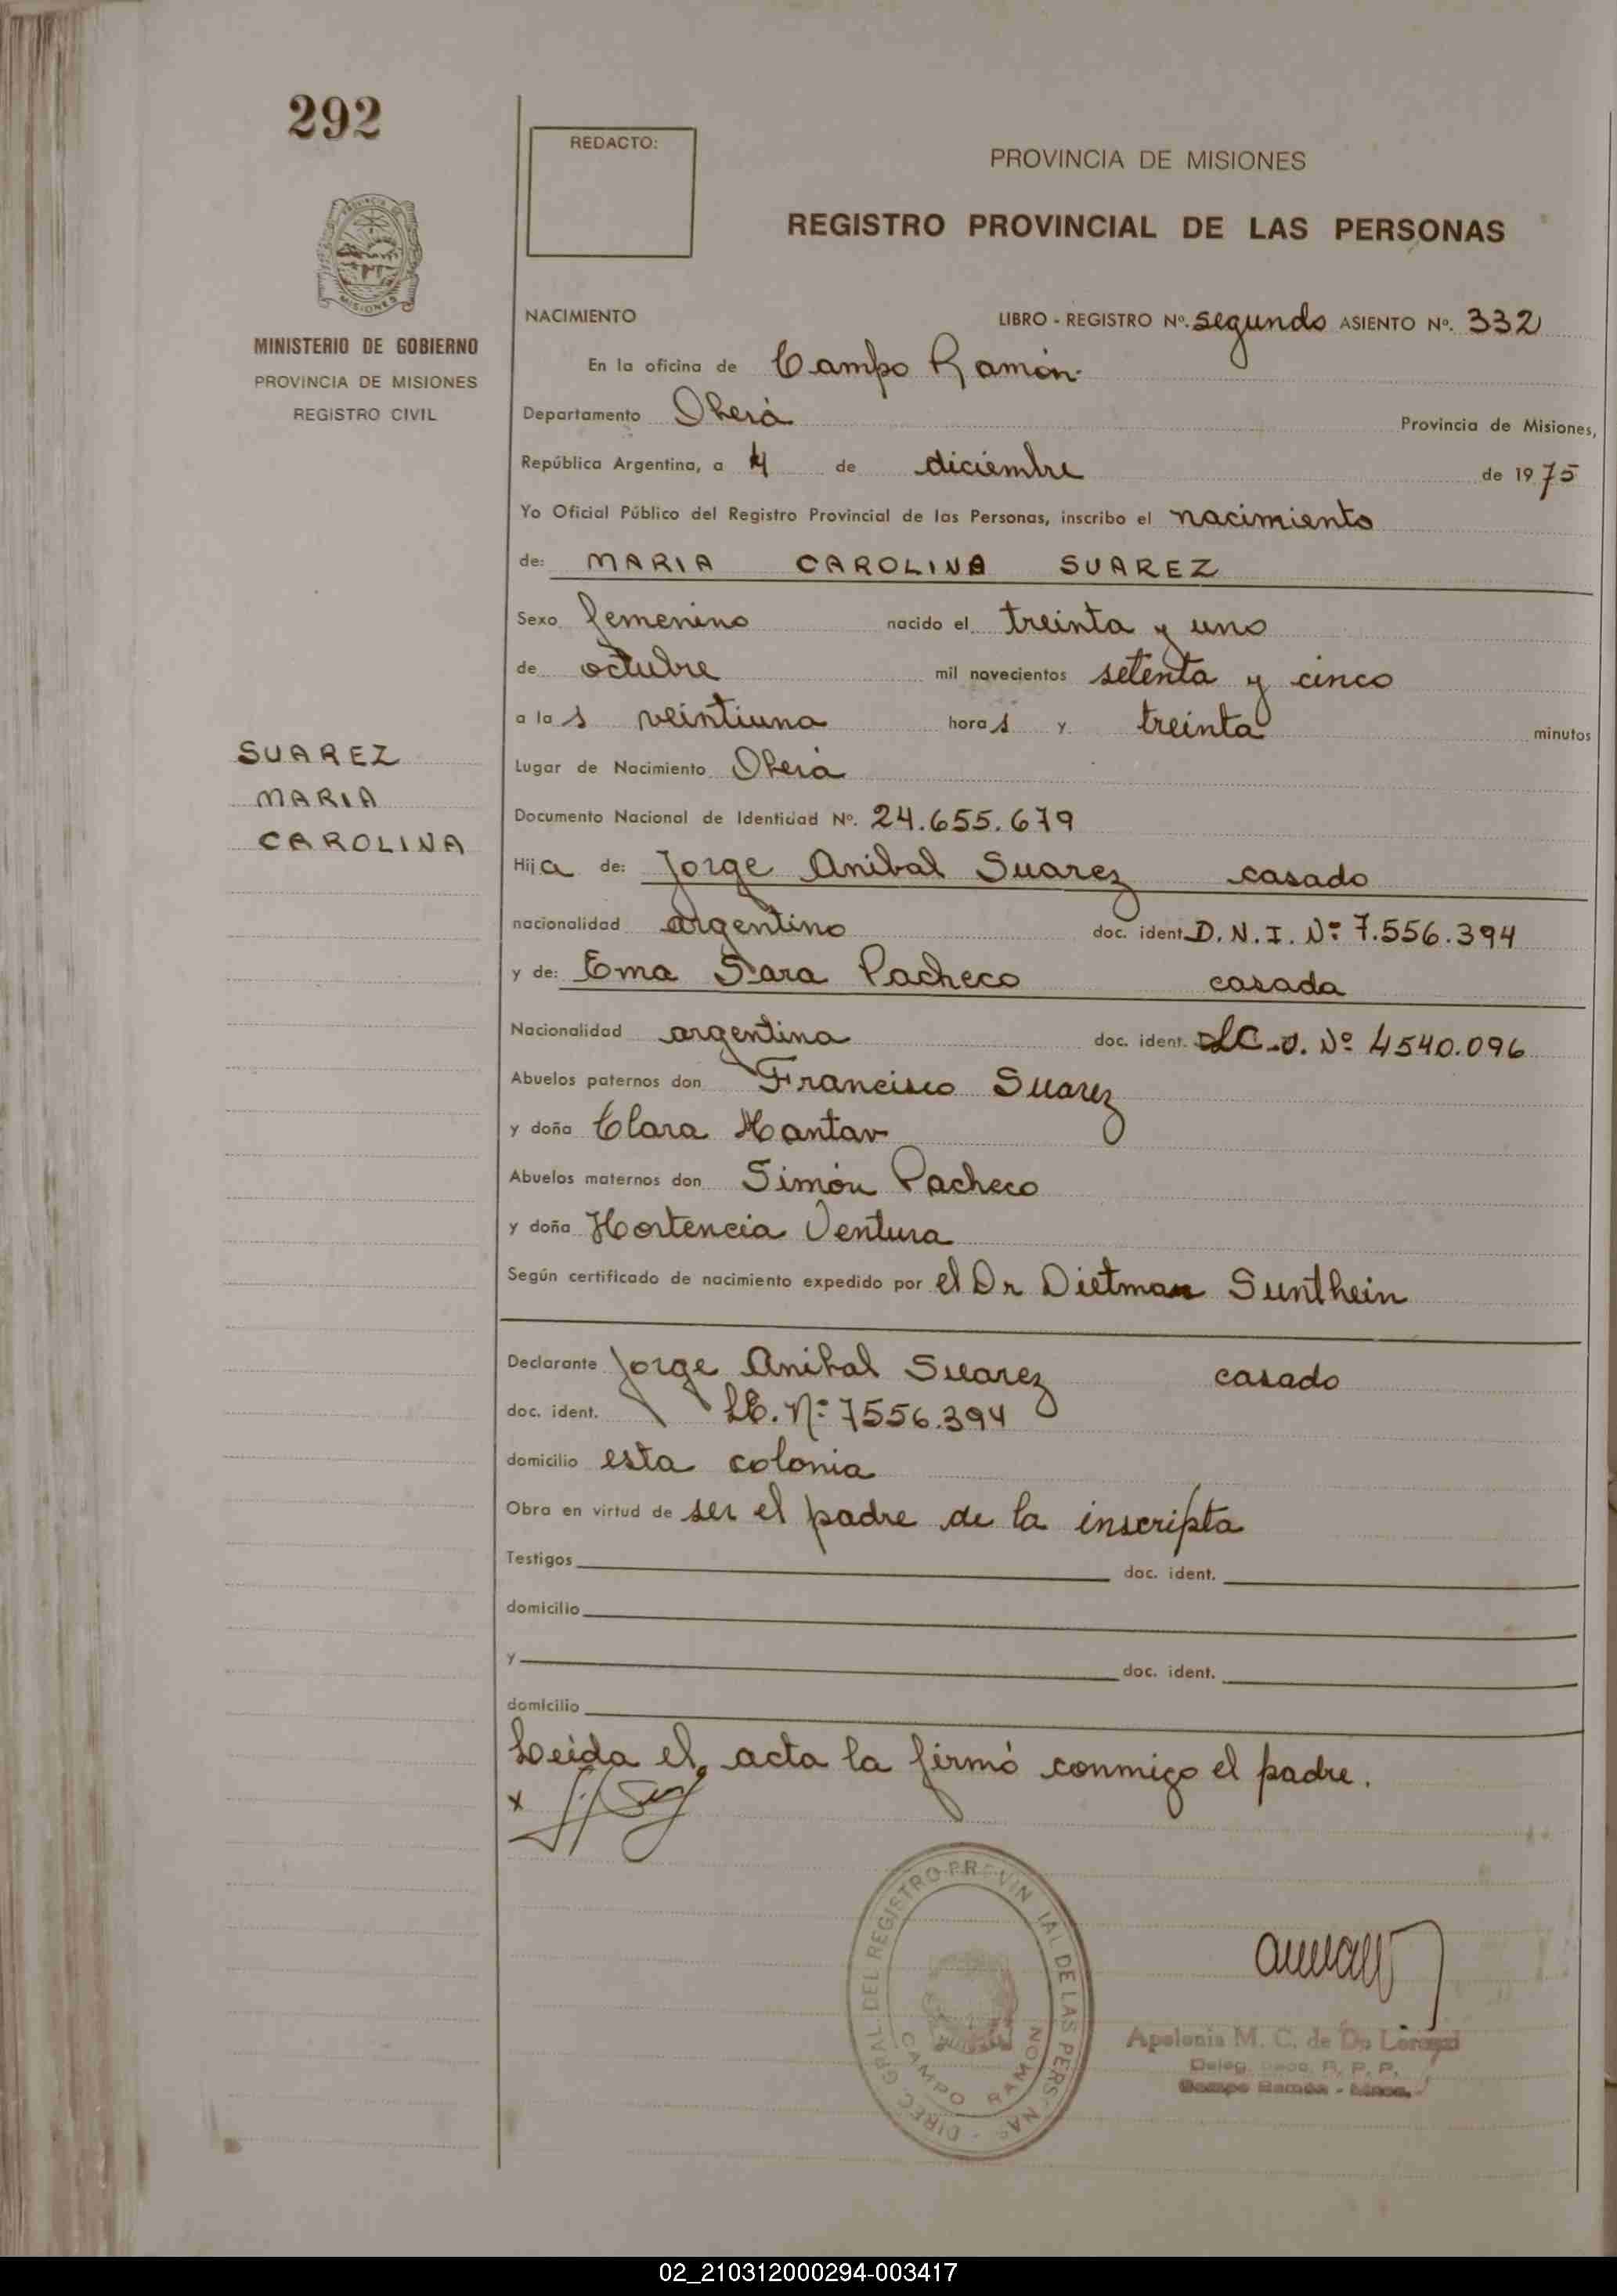 292
REDACTO:
PROVINCIA DE MISIONES
REGISTRO PROVINCIAL DE LAS PERSONAS
PROVINCIA DE
MISIONES
MINISTERIO DE GOBIERNO
PROVINCIA DE MISIONES
REGISTRO CIVIL
NACIMIENTO LIBRO - REGISTRO Nº. segundo ASIENTO Nº. 332
En la oficina de Campo Ramón
Departamento Oberá Provincia de Misiones,
República Argentina, a 4 de diciembre de 1975
Yo Oficial Público del Registro Provincial de las Personas, inscribo el nacimiento
de: MARIA CAROLINA SUAREZ
Sexo femenino nacido el treinta y uno
de octubre mil novecientos setenta y cinco
a las veintiuna horas y treinta minutos
SUAREZ
MARIA
CAROLINA
Lugar de Nacimiento Oberá
Documento Nacional de Identidad Nº. 24.655.679
Hija de: Jorge Anibal Suarez casado
nacionalidad argentino doc. ident. D.N.I. Nº 7.556.394
y de: Ema Sara Pacheco casada
Nacionalidad argentina doc. ident. Nº 4540.096
Abuelos paternos don Francisco Suarez
y doña Clara
Abuelos maternos don Simón Pacheco
y doña Hortencia Ventura
Según certificado de nacimiento expedido por el Dr Dietman Sunthein
Declarante Jorge Anibal Suarez casado
doc. ident. LE. Nº 7556.394
domicilio esta colonia
Obra en virtud de ser el padre de la inscripta
Testigos doc. ident.
domicilio
y doc. ident.
domicilio
Leida el acta la firmó conmigo el padre.
x
DIREC. GRAL. DEL REGISTRO PROVINCIAL DE LAS PERSONAS
CAMPO RAMON
Apolonia M. C. de De Lorenzi
Deleg. R. P. P.
Campo Ramón - Mnes.
02_210312000294-003417